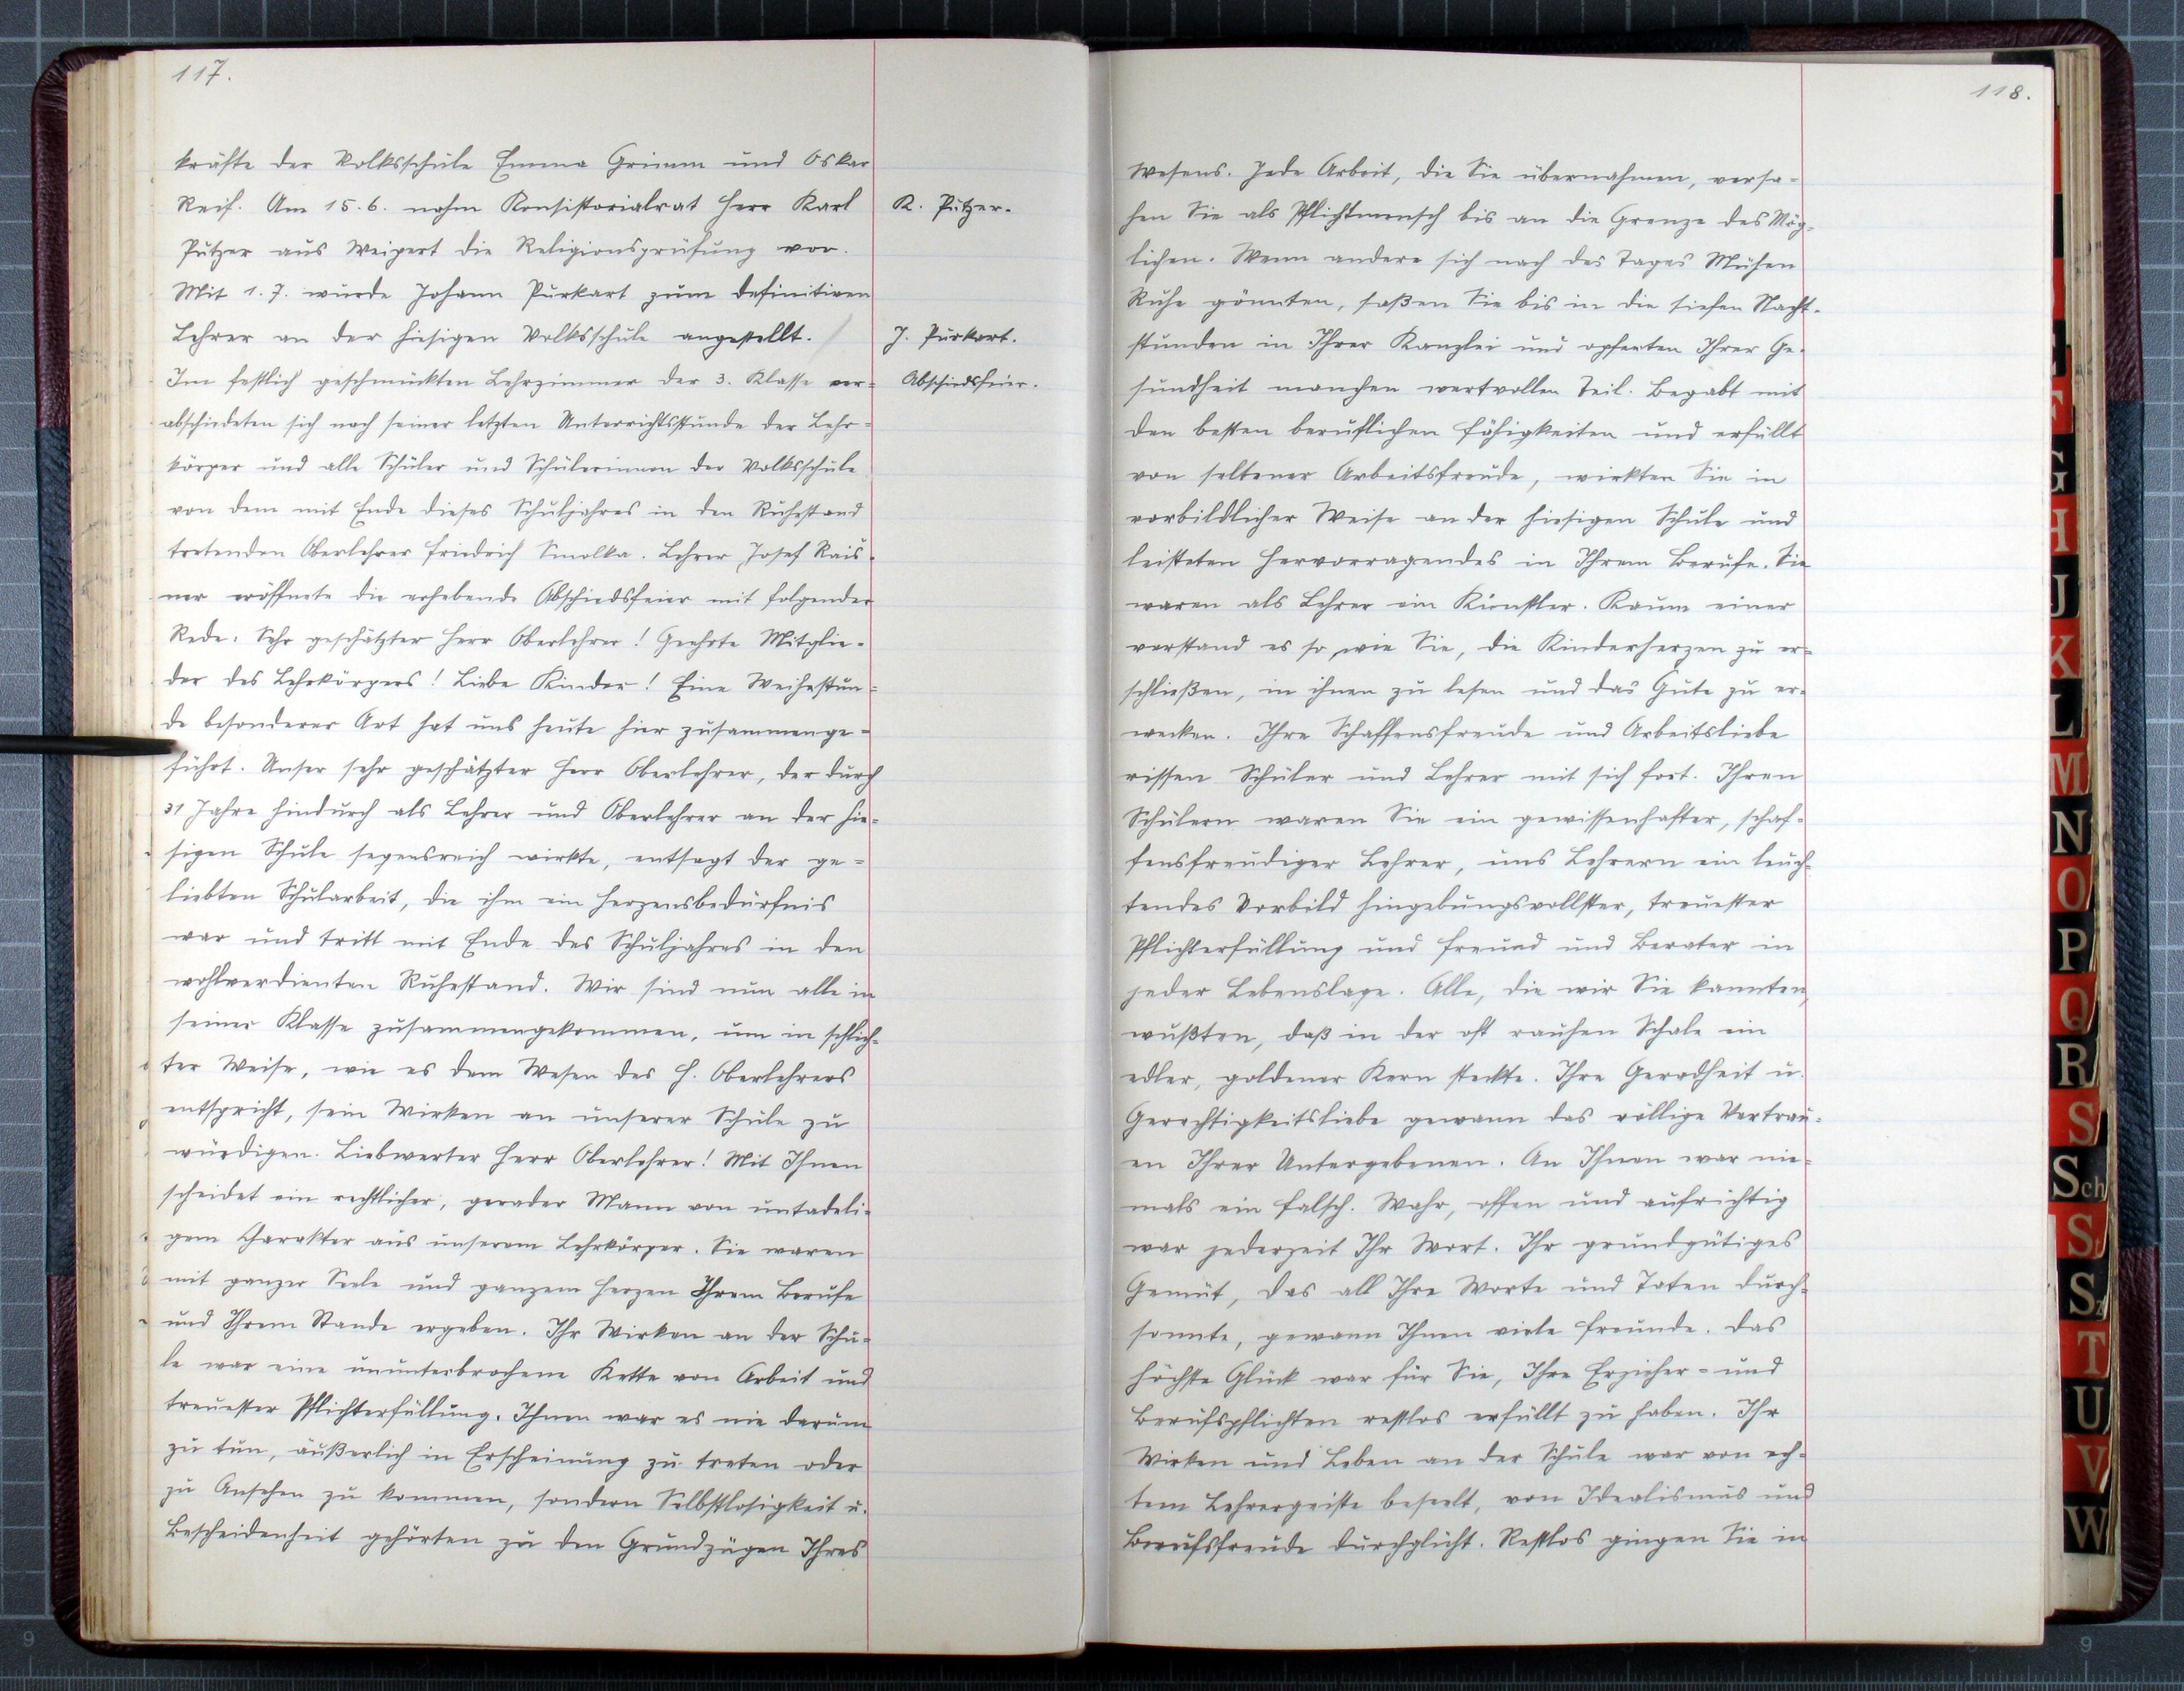 117.
kräfte der Volksschule Emma Grimm und Oskar
Reif. Am 15.6. nahm Konsistorialrat Herr Karl
Putzer aus Weipert die Religionsprüfung vor.
Mit 1.7. wurde Johann Purkart zum definitiven
Lehrer an der hiesigen Volksschule angestellt.
Im festlich geschmückten Lehrzimmer der 3. Klasse ver=
abschiedeten sich nach seiner letzten Unterrichtsstunde der Lehr=
körper und alle Schüler und Schülerinnen der Volksschule
von dem mit Ende dieses Schuljahres in den Ruhestand
tretenden Oberlehrer Friedrich Smolka. Lehrer Josef Rais=
ner eröffnete die erhebende Abschiedsfeier mit folgender
Rede: Sehr geschätzter Herr Oberlehrer! Geehrte Mitglie=
der des Lehrkörpers! Liebe Kinder! Eine Weihestun=
de besonderer Art hat uns heute hier zusammenge=
führt. Unser sehr geschätzter Herr Oberlehrer, der durch
31 Jahre hindurch als Lehrer und Oberlehrer an der hie=
sigen Schule segensreich wirkte, entsagt der ge=
liebten Schularbeit, die ihm ein Herzensbedürfnis
war und tritt mit Ende des Schuljahres in den
wohlverdienten Ruhestand. Wir sind nun alle in
seiner Klasse zusammengekommen, um in schlich=
ter Weise, wie es dem Wesen des H. Oberlehrers
entspricht, sein Wirken an unserer Schule zu
würdigen. Liebwerter Herr Oberlehrer! Mit Ihnen
scheidet ein rechtlicher, gerader Mann von untadeli=
gem Charakter aus unserem Lehrkörper. Sie waren
mit ganzer Seele und ganzem Herzen Ihrem Berufe
und Ihrem Stande ergeben. Ihr Wirken an der Schu=
le war eine ununterbrochene Kette von Arbeit und
treuester Pflichterfüllung. Ihnen war es nie darum
zu tun, äußerlich in Erscheinung zu treten oder
zu Ansehen zu kommen, sondern Selbstlosigkeit u.
Bescheidenheit gehörten zu den Grundzügen Ihres
K. Putzer.
J. Purkart.
Abschiedsfeier.
118.
Wesens. Jede Arbeit, die Sie übernahmen, versa=
hen Sie als Pflichtmensch bis an die Grenze des Mög=
lichen. Wenn andere sich nach des Tages Mühen
Ruhe gönnten, saßen Sie bis in die tiefen Nacht=
stunden in Ihrer Kanzlei und opferten Ihrer Ge=
sundheit manchen wertvollen Teil. Begabt mit
den besten beruflichen Fähigkeiten und erfüllt
von seltener Arbeitsfreude, wirkten Sie in
vorbildlicher Weise an der hiesigen Schule und
leisteten Hervorragendes in Ihrem Berufe. Sie
waren als Lehrer ein Künstler. Kaum einer
verstand es so, wie Sie, die Kinderherzen zu er=
schließen, in ihnen zu lesen und das Gute zu er=
wecken. Ihre Schaffensfreude und Arbeitsliebe
rissen Schüler und Lehrer mit sich fort. Ihren
Schülern waren Sie ein gewissenhafter, schaf=
fensfreudiger Lehrer, uns Lehrern ein leuch=
tendes Vorbild hingebungsvollster, treuester
Pflichterfüllung und Freund und Berater in
jeder Lebenslage. Alle, die wir Sie kannten,
wußten, daß in der oft rauhen Schale ein
edler, goldener Kern steckte. Ihre Geradheit u.
Gerechtigkeitsliebe gewann das völlige Vertrau=
en Ihrer Untergebenen. An Ihnen war nie=
mals ein Falsch. Wahr, offen und aufrichtig
war jederzeit Ihr Wort. Ihr grundgütiges
Gemüt, das all Ihre Worte und Taten durch=
sonnte, gewann Ihnen viele Freunde. Das
höchste Glück war für Sie, Ihre Erzieher= und
Berufspflichten restlos erfüllt zu haben. Ihr
Wirken und Leben an der Schule war von ech=
tem Lehrergeiste beseelt, von Idealismus und
Berufsfreude durchglüht. Restlos gingen Sie in
G
H
J
K
L
M
N
O
P
Q
R
S
Sch
St
Sz
T
U
V
W
9
9